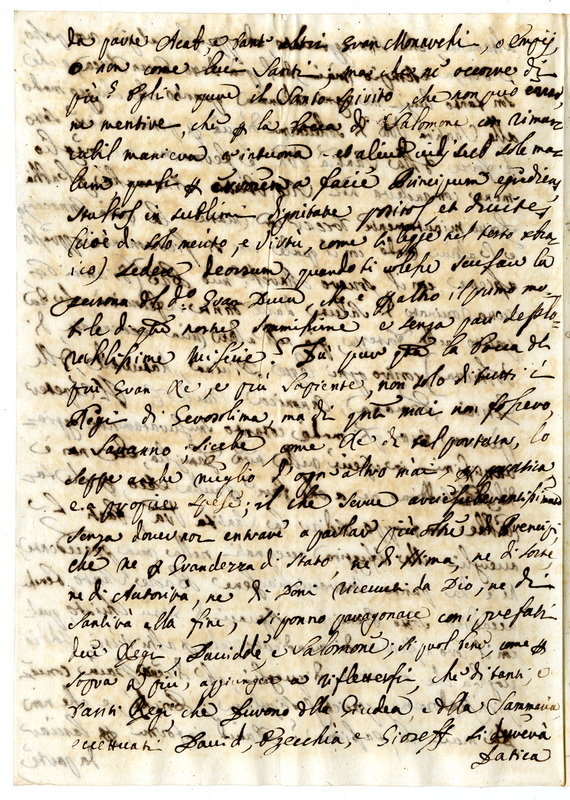 da parte Acab, e tant' altri Gran Monarchi, o empij
o non come lui Santi; ma che ne occorre di
più? Egli è pure il Santo Spirito, che non può errar,
ne mentire, che p la bocca di Salomone con rimar
cabil maniera intuona et aliud vidi sub sole ma
lum, quasi p a facie Principum egrediens
stultos in sublimi dignitate positos, et divites
(cioè di solo merito, e virtù, come si legge nel testo
ico) sedere deorsum, quando si volesse scusar la
persona del do Gran Duca, che è p altro il primo mo
bile di qte nostre somissime e senza pari deplo
rabilissime miserie. Fù pur qta la bocca del
più Gran Re, e più Sapiente, non solo di tutti i
Regi di Gerosolima, ma di qnti mai non fossero,
o saranno sicché come Re di tal portata, lo
seppe anche meglio d'ogn'altro mai p pratica
e a proprie spese; il che serve
senza dover noi entrare a parlar più oltre di Prencipi
che ne p Grandezza di Stato, ne di stima, ne di sorte,
ne di Autorità, ne di Doni ricevuti da Dio, ne di
Santità alla fine, si ponno paragonare con i prefati
due Regi, Davidde e Salomone; si puol bene, come p
sopra a più, aggiungere a riflettersi, che di tanti, e
tanti Regi che furono della Giudea, e della Sammaria
eccettuati David, Ezecchia, e Gioseff si durerà
fatica